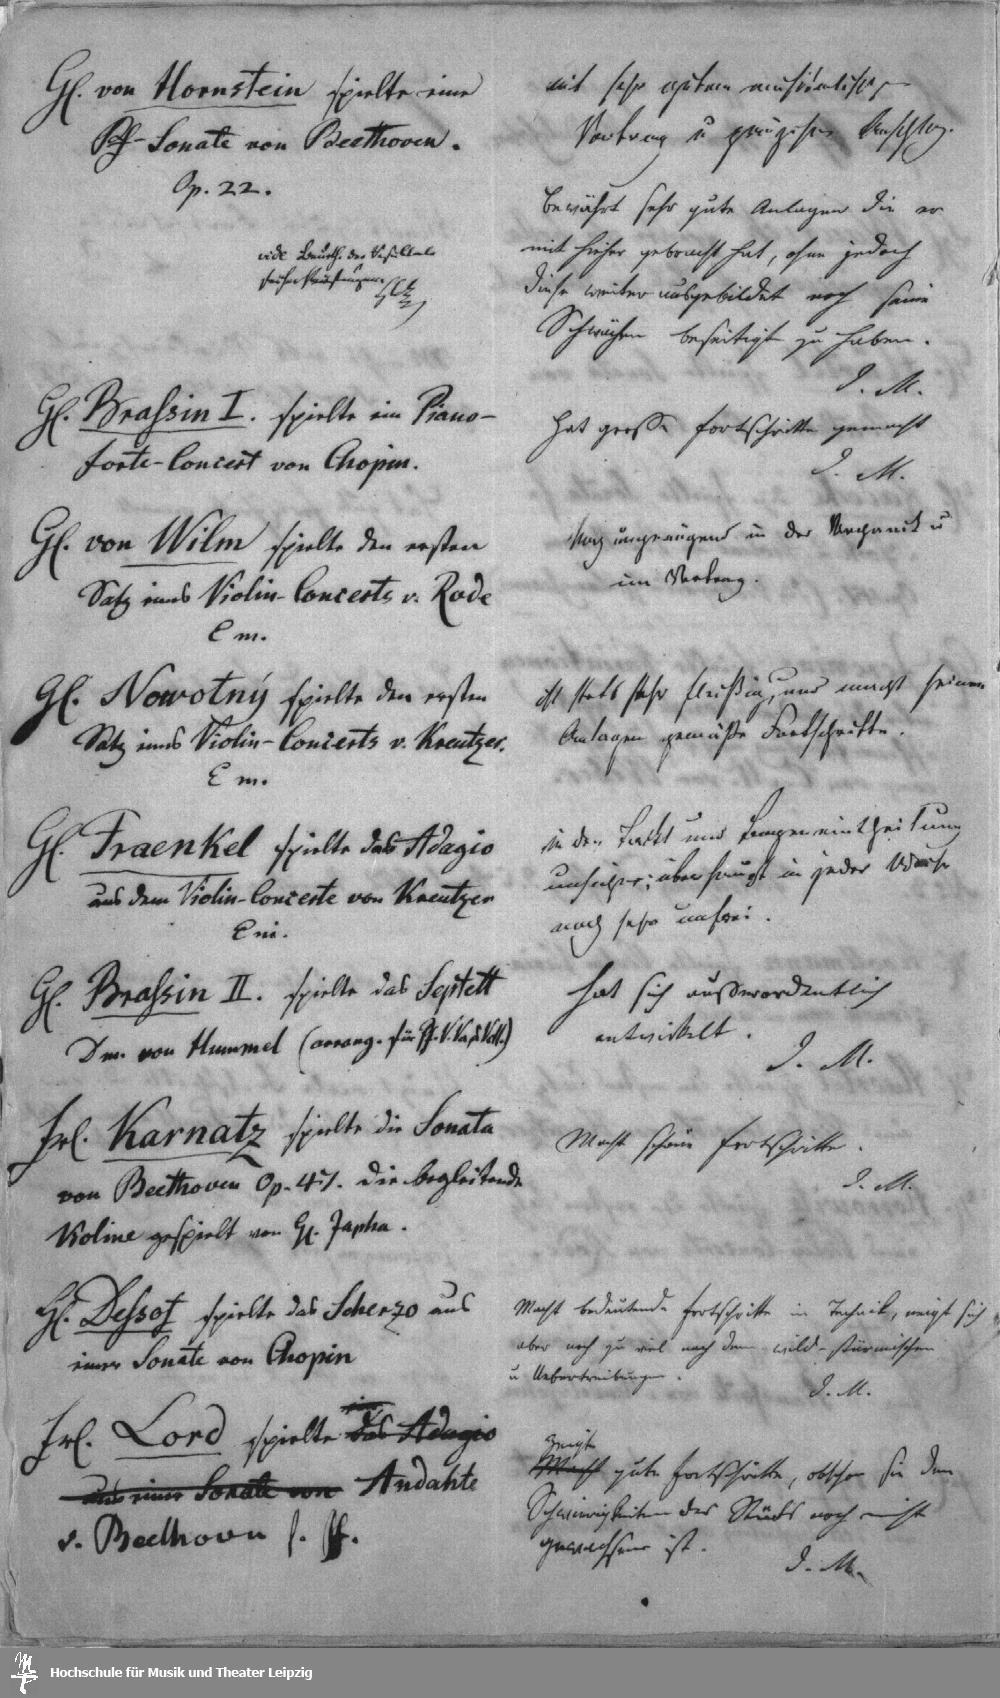 H. von Hornstein spielte eine
Pf-Sonate von Beethoven.
Op. 22.
mit sehr gutem musikalischen
Vortrag u Anschlag.
bewährt sehr gute Anlagen die er
mit hieher gebracht hat, ohne jedoch
diese weiter ausgebildet noch seine
Schwächen beseitigt zu haben.
I. M.
vide Beurth. der
früheren Prüfungen.
H. Brassin I. spielte ein Piano-
forte-Concert von Chopin.
hat grosse Fortschritte gemacht
I. M.
H. von Wilm spielte den ersten
Satz eines Violin-Concerts v. Rode
E m.
Noch ungenügend in der Mechanik u
im Vortrag.
H. Nowotný spielte den ersten
Satz eines Violin-Concerts v. Kreutzer.
E m.
ist stets sehr fleißig, und macht seinen
Anlagen gemäße Fortschritte.
H. Fraenkel spielte das Adagio
aus dem Violin-Concerte von Kreutzer
E m.
in der Takt und Tempoeintheilung
unsicher; überhaupt in jeder Weise
noch sehr unfrei.
H. Brassin II. spielte das Septett
Dm. von Hummel (arrang. für Pf. V. Va. & Vcll.)
hat sich ausserordentlich
entwickelt.
I. M.
Frl. Karnatz spielte die Sonata
von Beethoven Op. 47. die begleitende
Violine gespielt von H. Japha.
Macht schöne Fortschritte.
I. M.
H. Dessof spielte das Scherzo aus
einer Sonate von Chopin
Macht bedeutende Fortschritte in Technik, neigt sich
aber noch zu viel nach dem wild-stürmischen
u Uebertreibungen.
I. M.
Frl. Lord spielte ein das Adagio
aus einer Sonate von Andante
v. Beethoven f. Pf.
zeigt
Macht gute Fortschritte, obschon sie den
Schwierigkeiten des Stücks noch nicht
gewachsen ist.
I. M.
Hochschule für Musik und Theater Leipzig